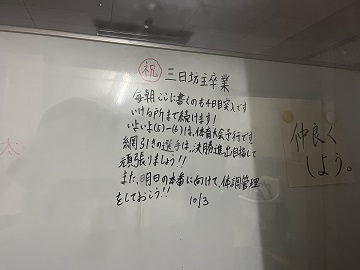 祝 三日坊主卒業
毎朝ここに書くのも4日目突入です
いける所まで続けます!
いよいよ(5)-(6)は、体育大会予行です
綱引きの選手は、決勝進出目指して
頑張りましょう!!
また、明日の本番に向けて、体調管理
をしておこう!!
10/3
仲良く
しよう。
太